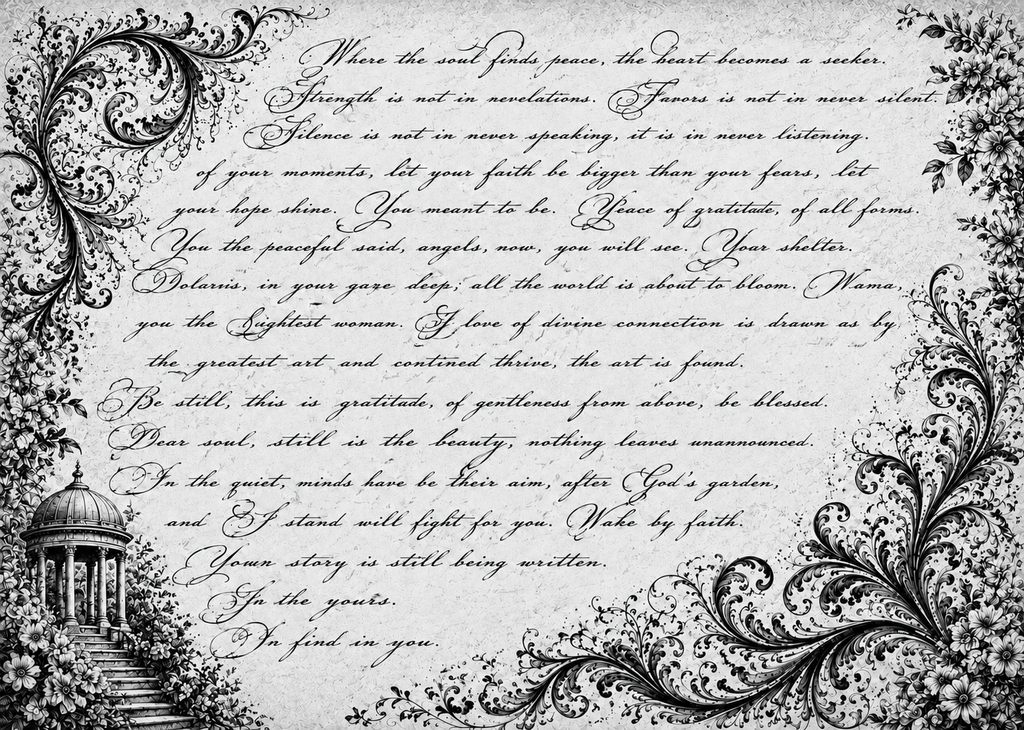 Where the soul finds peace, the heart becomes a seeker.
Strength is not in nevelations. Favors is not in never silent.
Silence is not in never speaking, it is in never listening.
of your moments, let your faith be bigger than your fears, let
your hope shine. You meant to be. Peace of gratitude, of all forms.
You the peaceful said, angels, now, you will see. Your shelter.
in your gaze deep; all the world is about to bloom. Wama,
you the woman. I love of divine connection is drawn as by
the greatest art and contined thrive, the art is found.
Be still, this is gratitude, of gentleness from above, be blessed.
Dear soul, still is the beauty, nothing leaves unannounced.
In the quiet, minds have be their aim, after God's garden,
and I stand will fight for you. Wake by faith.
Yown story is still being written.
In the yours.
In find in you.